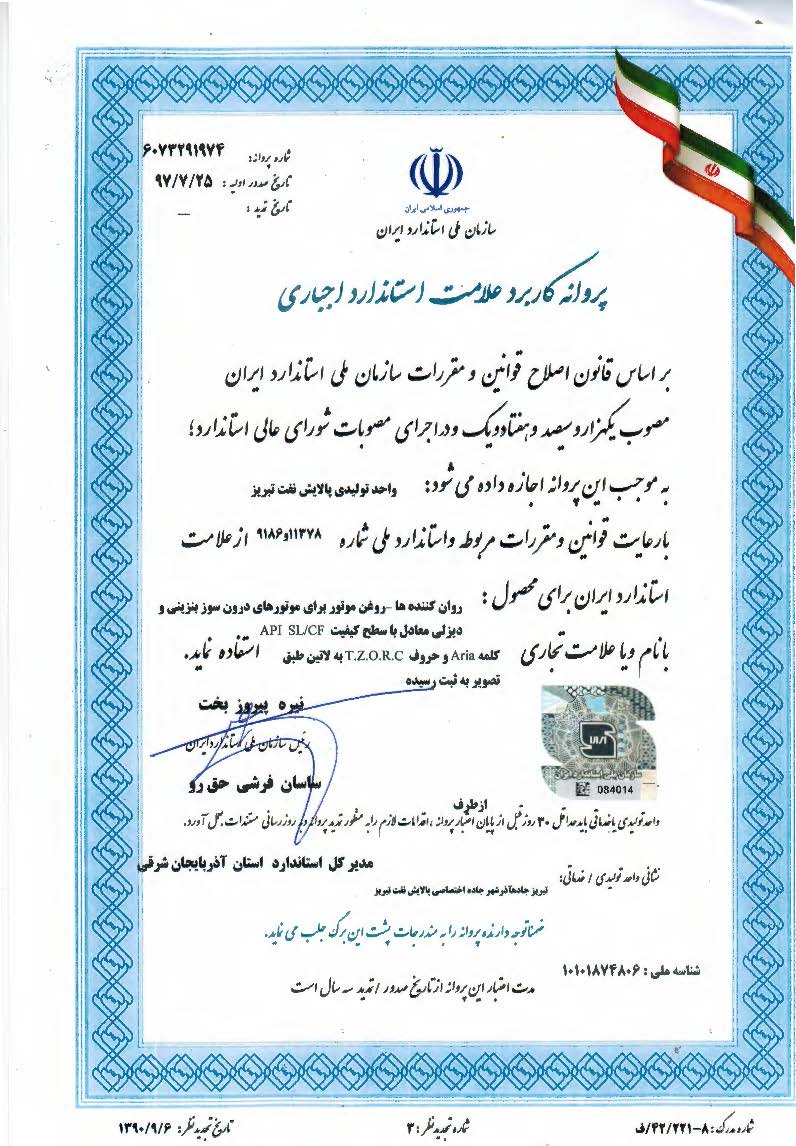 شماره پروانه: ۶۰۷۳۲۹۱۹۷۴
تاریخ صدور اولیه: ۹۷/۷/۲۵
تاریخ تمدید: —
جمهوری اسلامی ایران
سازمان ملی استاندارد ایران
پروانه کاربرد علامت استاندارد اجباری
بر اساس قانون اصلاح قوانین و مقررات سازمان ملی استاندارد ایران
مصوب یکهزار و سیصد و هفتاد و یک و در اجرای مصوبات شورای عالی استاندارد؛
به موجب این پروانه اجازه داده می شود: واحد تولیدی پالایش نفت تبریز
با رعایت قوانین و مقررات مربوطه و استاندارد ملی شماره ۱۱۳۷۸و۹۱۸۶ از علامت
استاندارد ایران برای محصول: روان کننده ها -روغن موتور برای موتورهای درون سوز بنزینی و
دیزلی معادل با سطح کیفیت API SL/CF
با نام و یا علامت تجاری کلمه Aria و حروف T.Z.O.R.C به لاتین طبق استفاده نماید.
تصویر به ثبت رسیده
نیره پیروز بخت
رئیس سازمان ملی استاندارد ایران
ساسان فرشی حق رو
سازمان ملی استاندارد ایران
084014
ازطرف
واحد تولیدی یا خدماتی باید حداقل ۳۰ روز قبل از پایان اعتبار پروانه، اقدامات لازم را به منظور تمدید پروانه و به روز رسانی مستندات بعمل آورد.
مدیر کل استاندارد استان آذربایجان شرقی
نشانی واحد تولیدی / خدماتی: تبریز جاده آذرشهر جاده اختصاصی پالایش نفت تبریز
ضمناً توجه دارنده پروانه را به مندرجات پشت این برگ جلب می نماید.
شناسه ملی: ۱۰۱۰۱۸۷۴۸۰۶
مدت اعتبار این پروانه از تاریخ صدور / تمدید سه سال است
شماره مدرک: ف/۴۲/۲۲۱-۸
شماره تجدید نظر: ۳
تاریخ تجدید نظر: ۱۳۹۰/۹/۶